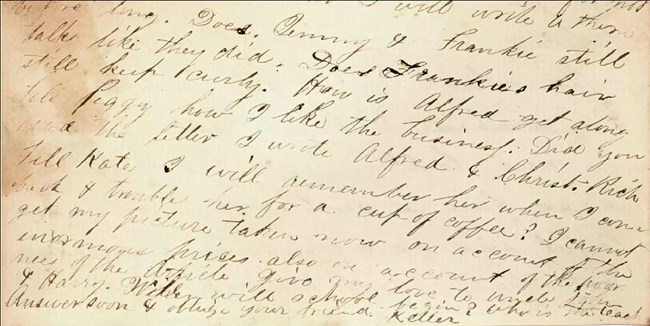 before long. I will write to them
talk like they did. Does Jenny & Frankie still
still keep curly. Does Frankies hair
Tell Peggy how I like the business. How is Alfred get along
read the letter I wrote Alfred & Christ. Did you
Tell Kate I will remember her when I come
back & trouble her for a cup of coffee? I cannot
get my picture taken now on account of the
enormous prises also on account of the poor
ness of the article give my love to uncle
& Harry. When will school begin & who is the teach
Answer soon & oblige your friend Keller